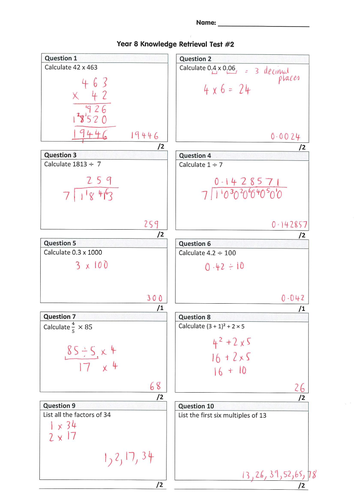 Name:
Year 8 Knowledge Retrieval Test #2
Question 1
Calculate 42 x 463
463
x 42
926
18520
19446
19446
/2
Question 2
Calculate 0.4 x 0.06
= 3 decimal
places
4 x 6 = 24
0.0024
/2
Question 3
Calculate 1813 ÷ 7
259
7 1 18 41 63
259
/2
Question 4
Calculate 1 ÷ 7
0.1428571
7 1 10 30 20 60 40 50 0
0.142857
/2
Question 5
Calculate 0.3 x 1000
3 x 100
300
/1
Question 6
Calculate 4.2 ÷ 100
0.42 ÷ 10
0.042
/1
Question 7
Calculate 4/5 × 85
85 ÷ 5 x 4
17 x 4
68
/2
Question 8
Calculate (3 + 1)² + 2 × 5
4² + 2 x 5
16 + 2 x 5
16 + 10
26
/2
Question 9
List all the factors of 34
1 x 34
2 x 17
1, 2, 17, 34
/2
Question 10
List the first six multiples of 13
13, 26, 39, 52, 65, 78
/2